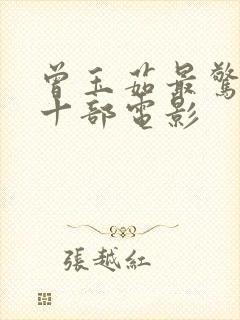 曾玉茹最驚
十部電影
張越紅